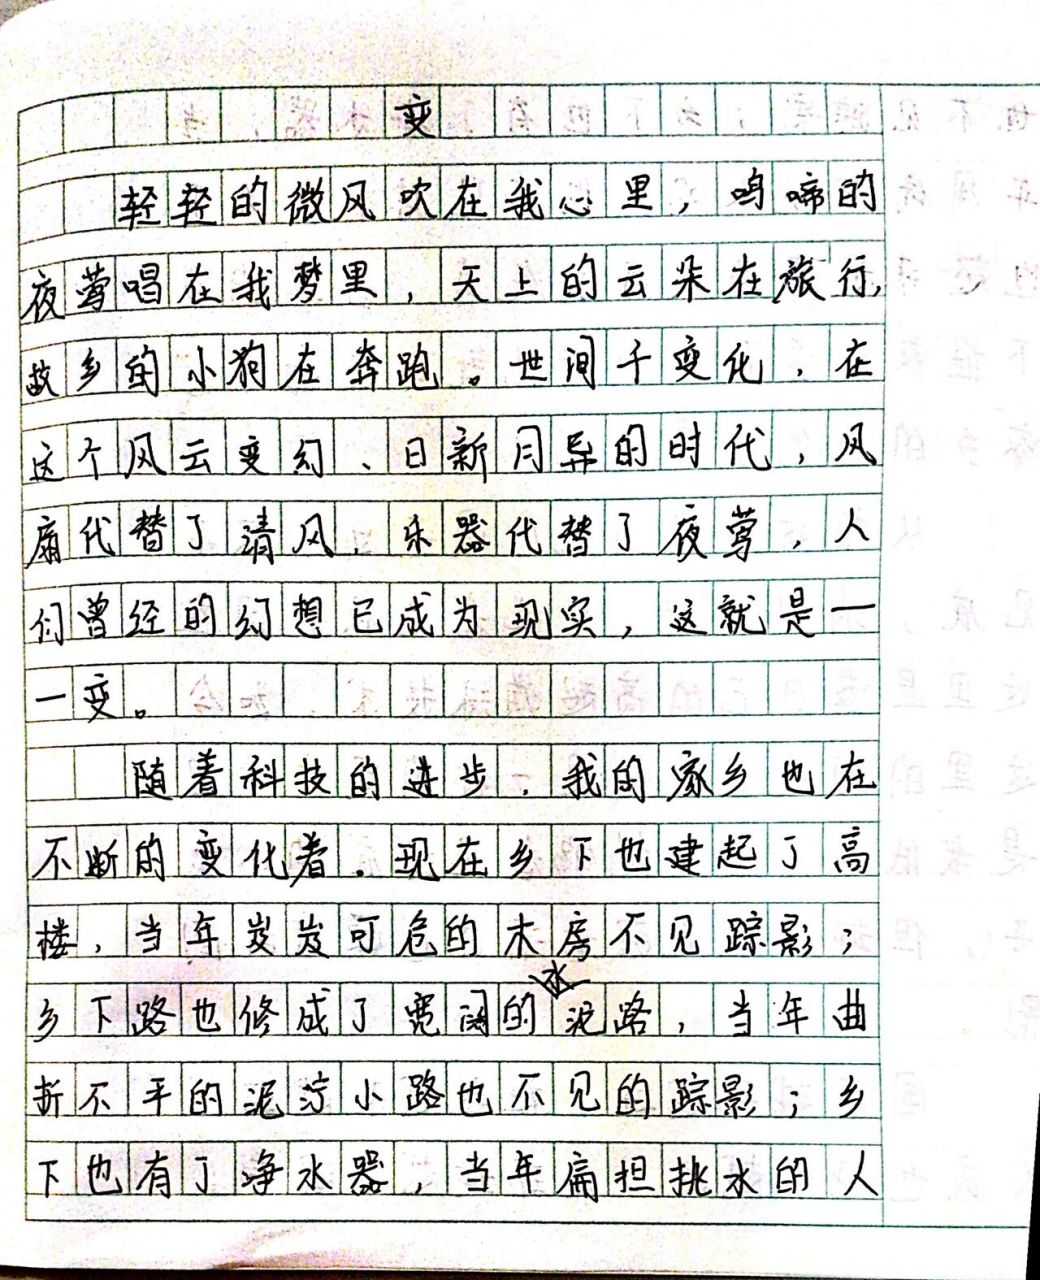 变
轻轻的微风吹在我心里，鸣啼的
夜莺唱在我梦里，天上的云朵在旅行，
故乡的小狗在奔跑。世间千变化，在
这个风云变幻、日新月异的时代，风
扇代替了清风，乐器代替了夜莺，人
们曾经的幻想已成为现实，这就是一
一变。
随着科技的进步，我的家乡也在
不断的变化着。现在乡下也建起了高
楼，当年岌岌可危的木房不见踪影；
乡下路也修成了宽阔的水泥路，当年曲
折不平的泥泞小路也不见的踪影；乡
下也有了净水器，当年扁担挑水的人